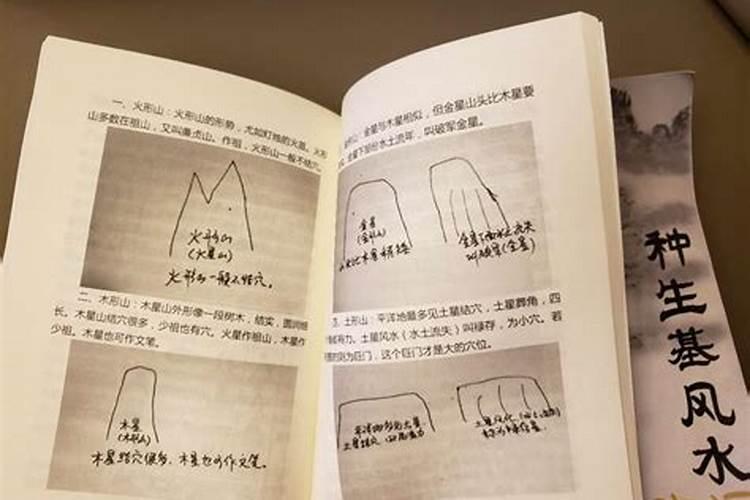 一、火形山：火形山的形势，尤如灯烛的火苗。火形
山多数在祖山，又叫廉贞山。作祖，火形山一般不结穴。
火形山
(火星山)
火形山一般不结穴。
二、木形山：木星山外形像一段树木，结实，圆润
长。木星山结穴很多，少祖也有穴。火星作祖山，木星作
少祖。木星也可作文笔。
木星
(木形山)
木星结穴很多，木星也可作文笔。
金星与木星相似，但金星山头比木星要
金星下部份水土流年，叫破军金星。
金星
(金形山)
山头比木星稍矮
金星下面水土流失
叫破军(金星)
土形山：平洋地最多见土星结穴，土星葬角，四
有力。土星风化（水土流失）叫禄存，为小穴。若
的则为巨门，这个巨门才是大的穴位。
平洋地多见土星
土星结穴
土星风化（水土流失）
种生基风水